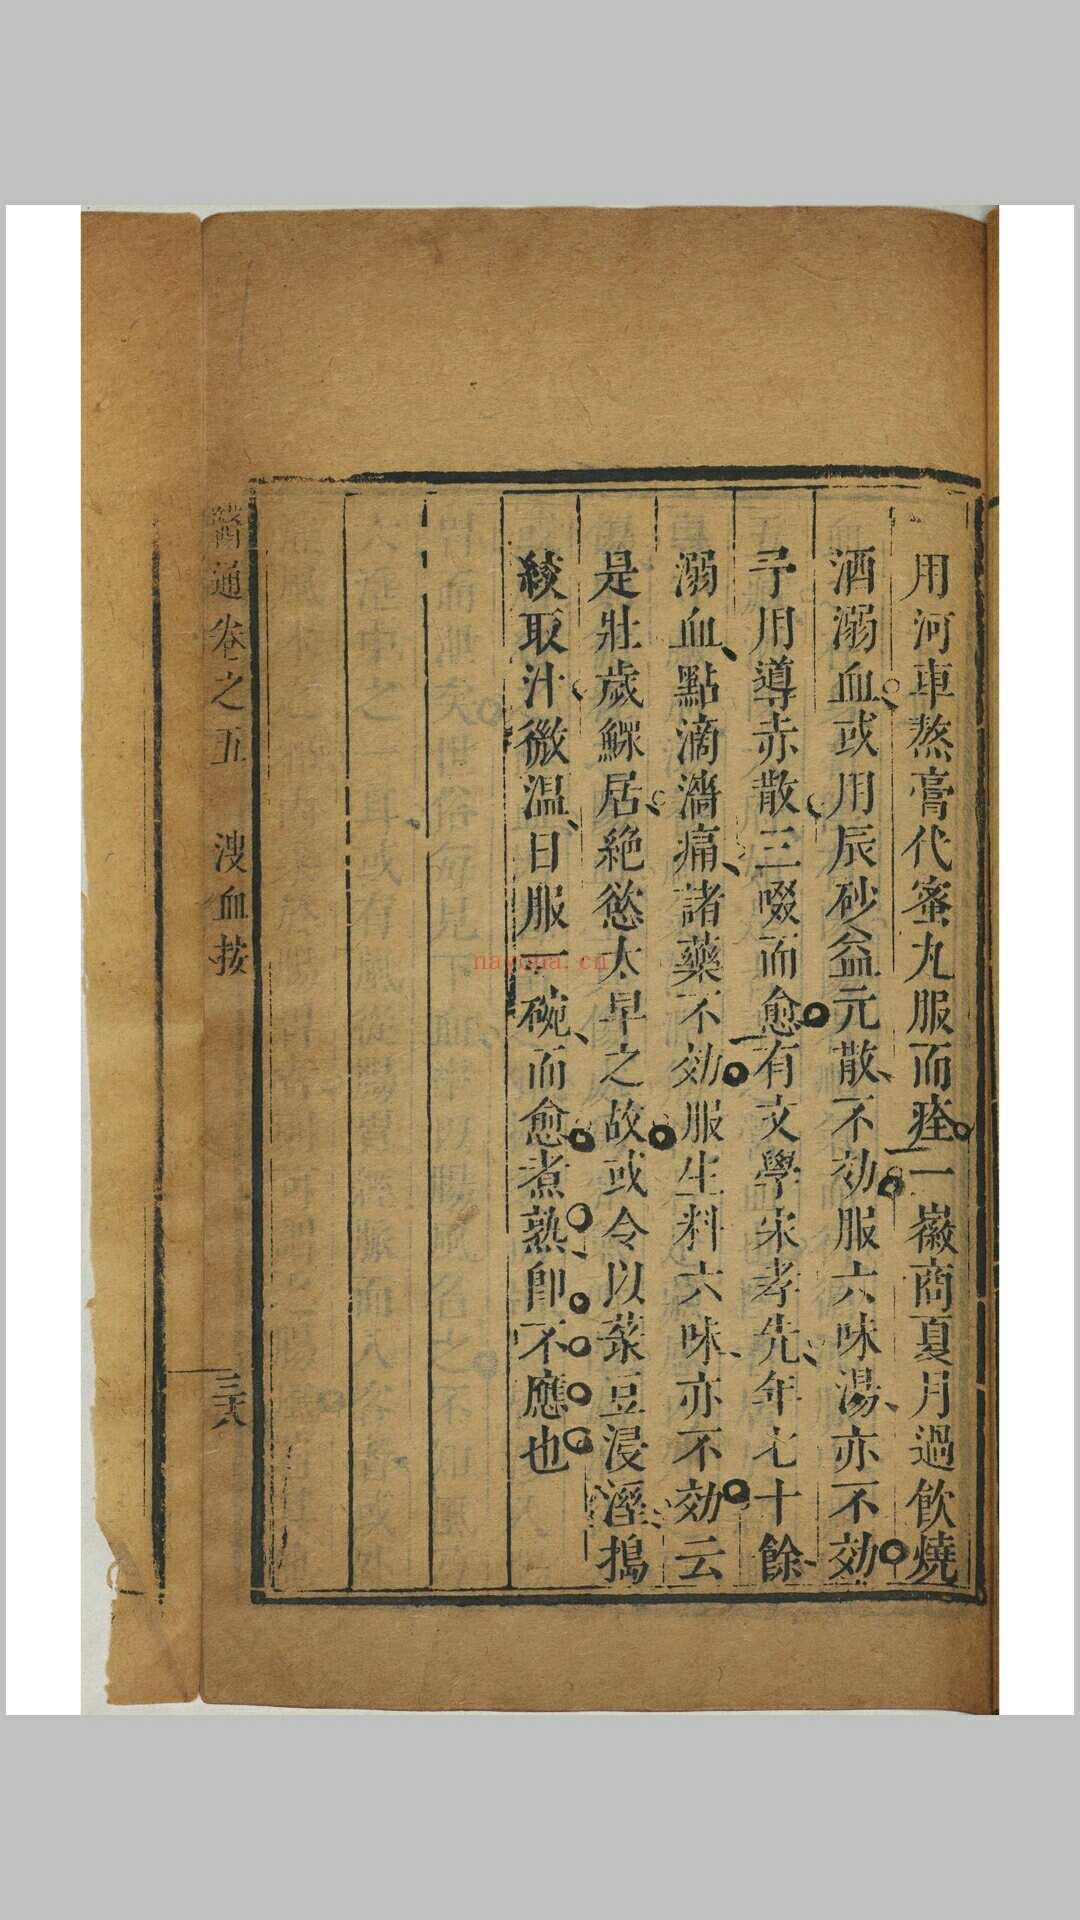 用河車熬膏代蜜丸服而痊一徽商夏月過飲燒
酒溺血或用辰砂益元散不効服六味湯亦不効
予用導赤散三啜而愈有文學宋孝先年七十餘
溺血點滴濇痛諸藥不効服生料六味亦不効云
是壯歲鰥居絶慾太早之故或令以菉豆浸溼搗
絞取汁微温日服一碗而愈煮熟卽不應也
醫通卷之五 溲血按
三十八
nayona.cn